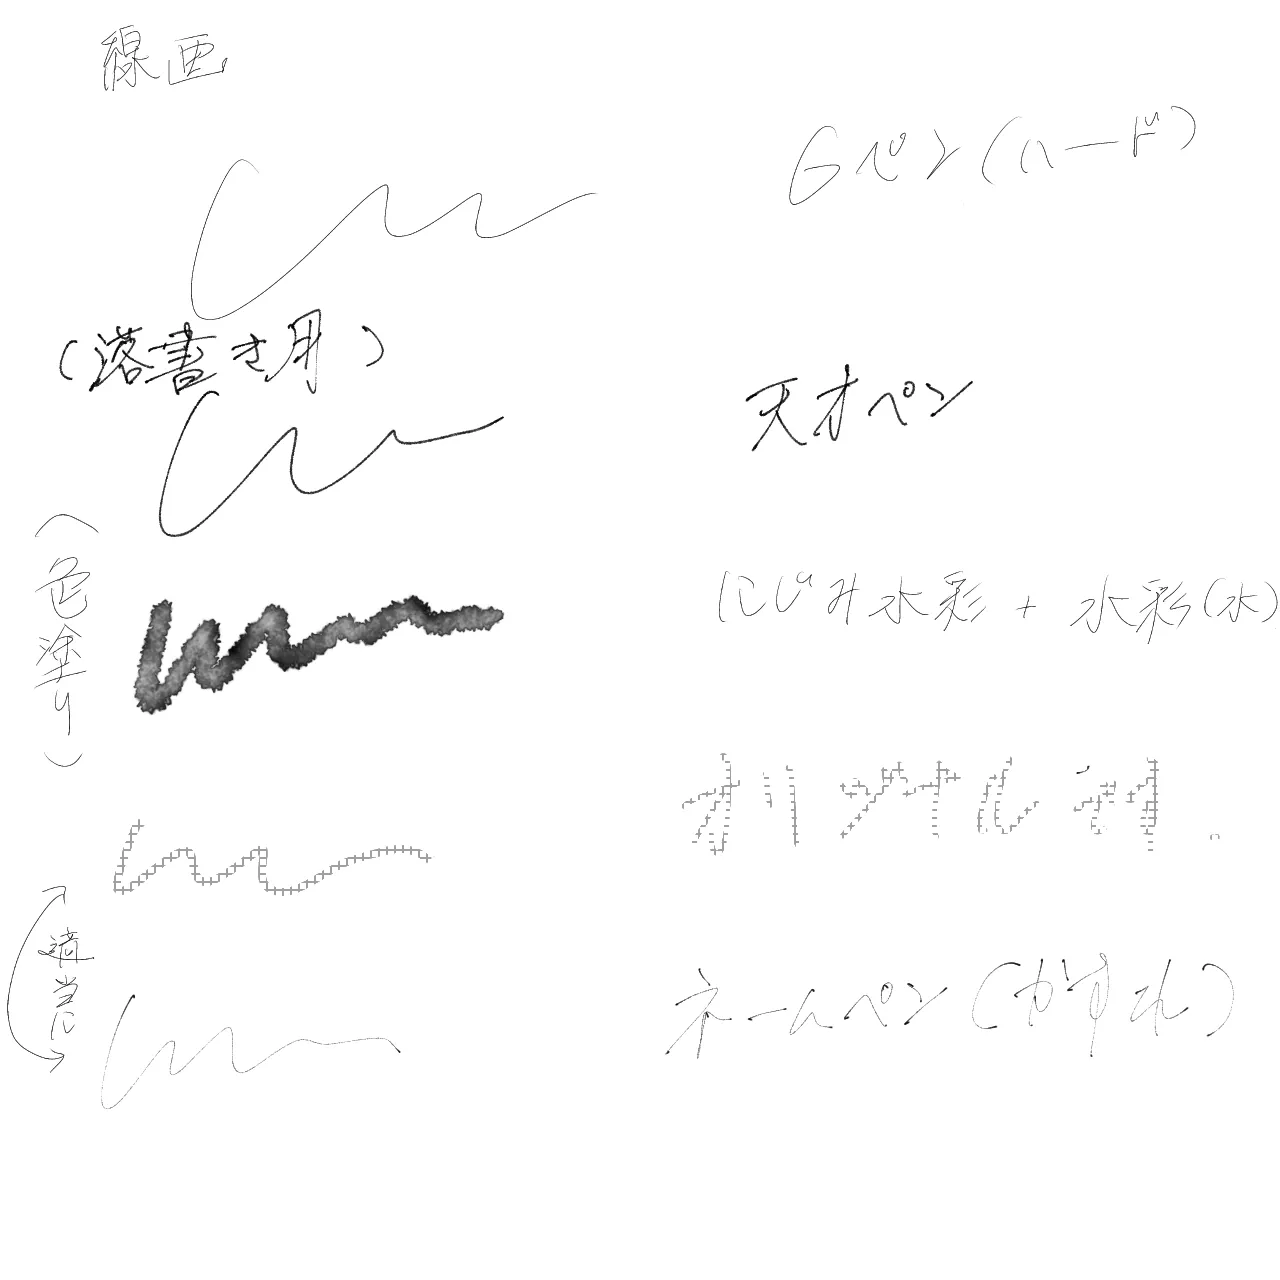 線画
Gペン(ハード)
(落書き用)
天才ペン
(色塗り)
にじみ水彩 + 水彩(水)
オリジナル
適当に
ネームペン(かすれ)